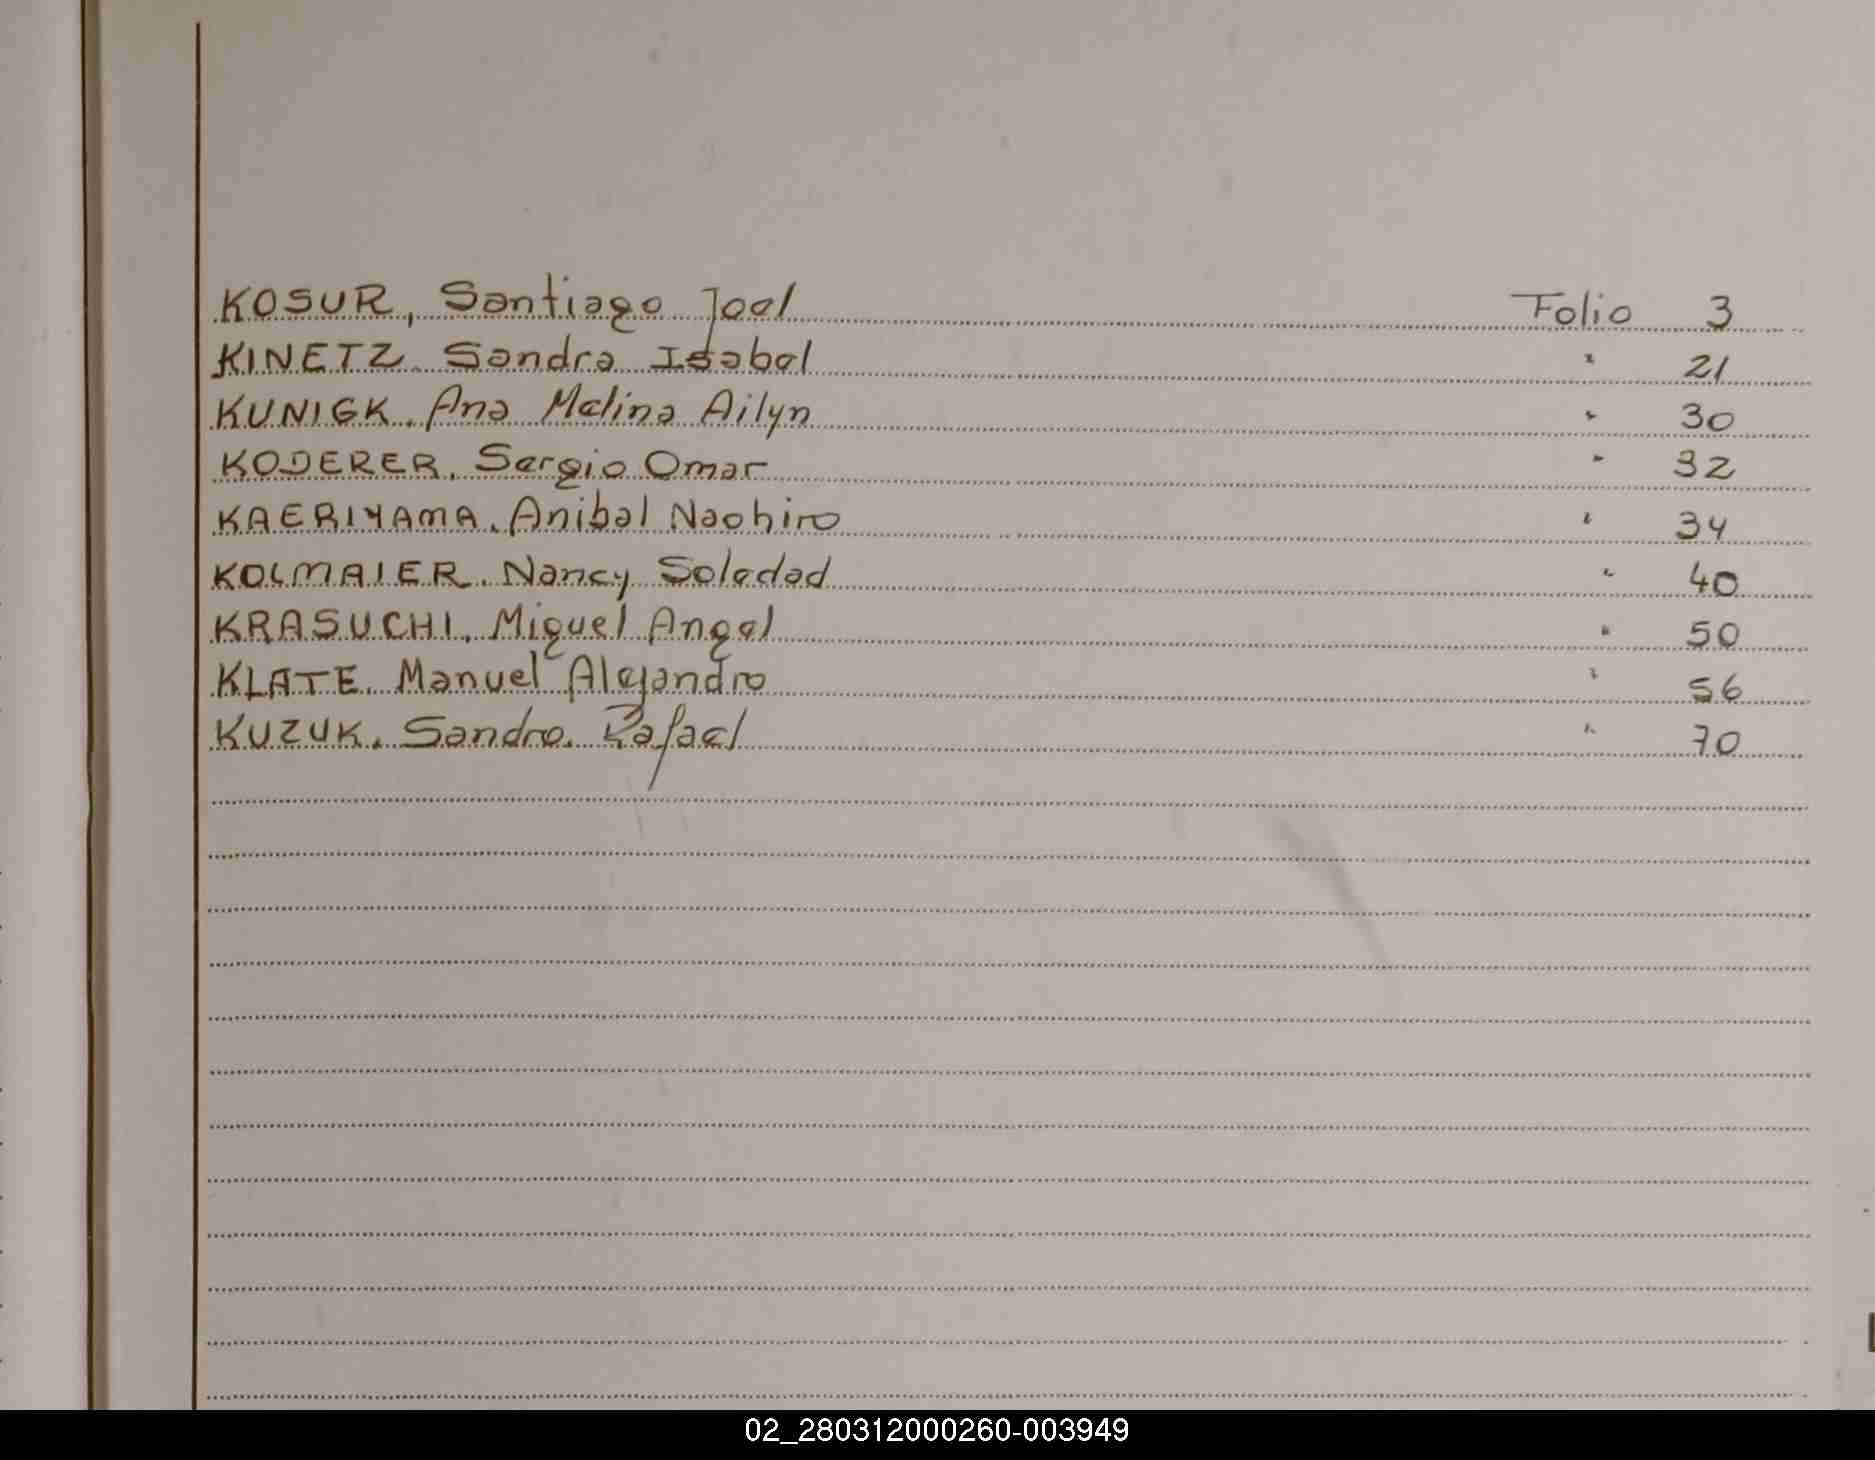 KOSUR, Santiago Joel Folio 3
KINETZ. Sandra Isabel " 21
KUNIGK. Ana Melina Ailyn " 30
KODERER. Sergio Omar " 32
KAERIYAMA. Anibal Naohiro " 34
KOLMAIER. Nancy Soledad " 40
KRASUCHI. Miguel Angel " 50
KLATE. Manuel Alejandro " 56
KUZUK. Sandro. Rafael " 70
02_280312000260-003949